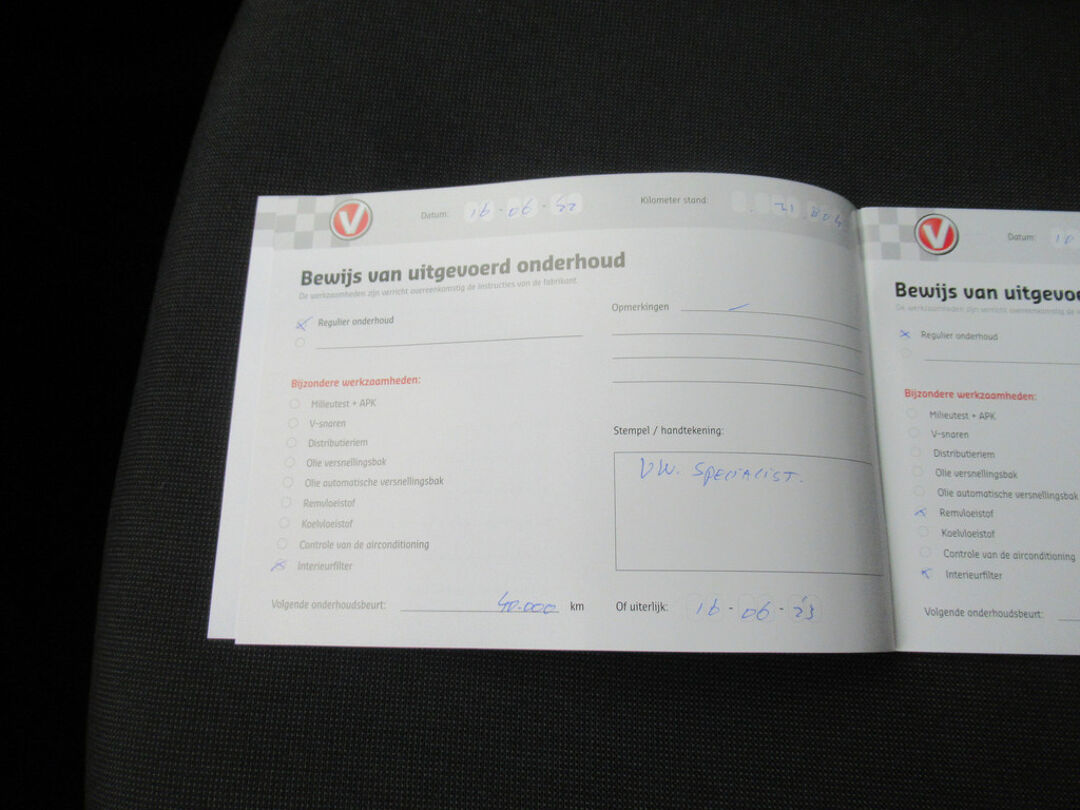 V
Datum: 16-06-22
Kilometer stand: 21.804
Bewijs van uitgevoerd onderhoud
De werkzaamheden zijn verricht overeenkomstig de instructies van de fabrikant.
Regulier onderhoud
Opmerkingen
Bijzondere werkzaamheden:
Milieutest + APK
V-snaren
Distributieriem
Olie versnellingsbak
Olie automatische versnellingsbak
Remvloeistof
Koelvloeistof
Controle van de airconditioning
Interieurfilter
Stempel / handtekening:
VW. SPECIALIST.
Volgende onderhoudsbeurt: 40.000 km
Of uiterlijk: 16-06-23
V
Datum: 10
Bewijs van uitgevoe
De werkzaamheden zijn verricht overeenkomstig de
Regulier onderhoud
Bijzondere werkzaamheden:
Milieutest + APK
V-snaren
Distributieriem
Olie versnellingsbak
Olie automatische versnellingsbak
Remvloeistof
Koelvloeistof
Controle van de airconditioning
Interieurfilter
Volgende onderhoudsbeurt: